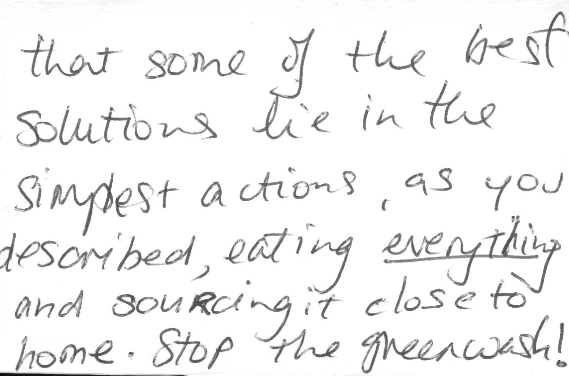 that some of the best
solutions lie in the
simplest actions, as you
described, eating everything
and sourcing it close to
home. Stop the greenwash!